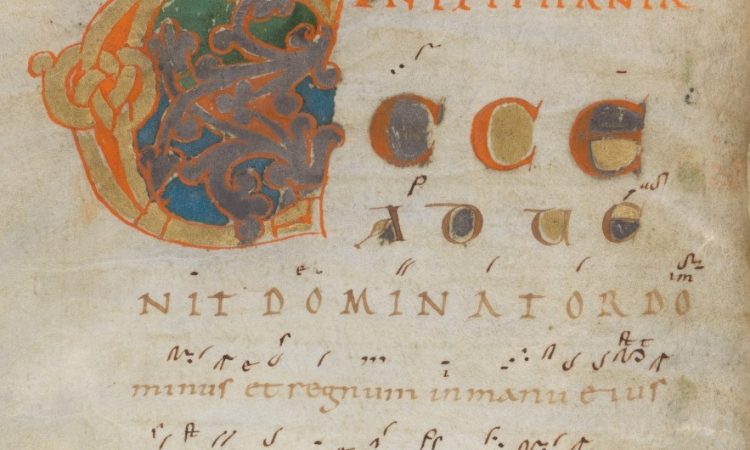 IN EPIPHANIA
ECCE
ADUE
NIT DOMINATOR DO
minus et regnum in manu eius